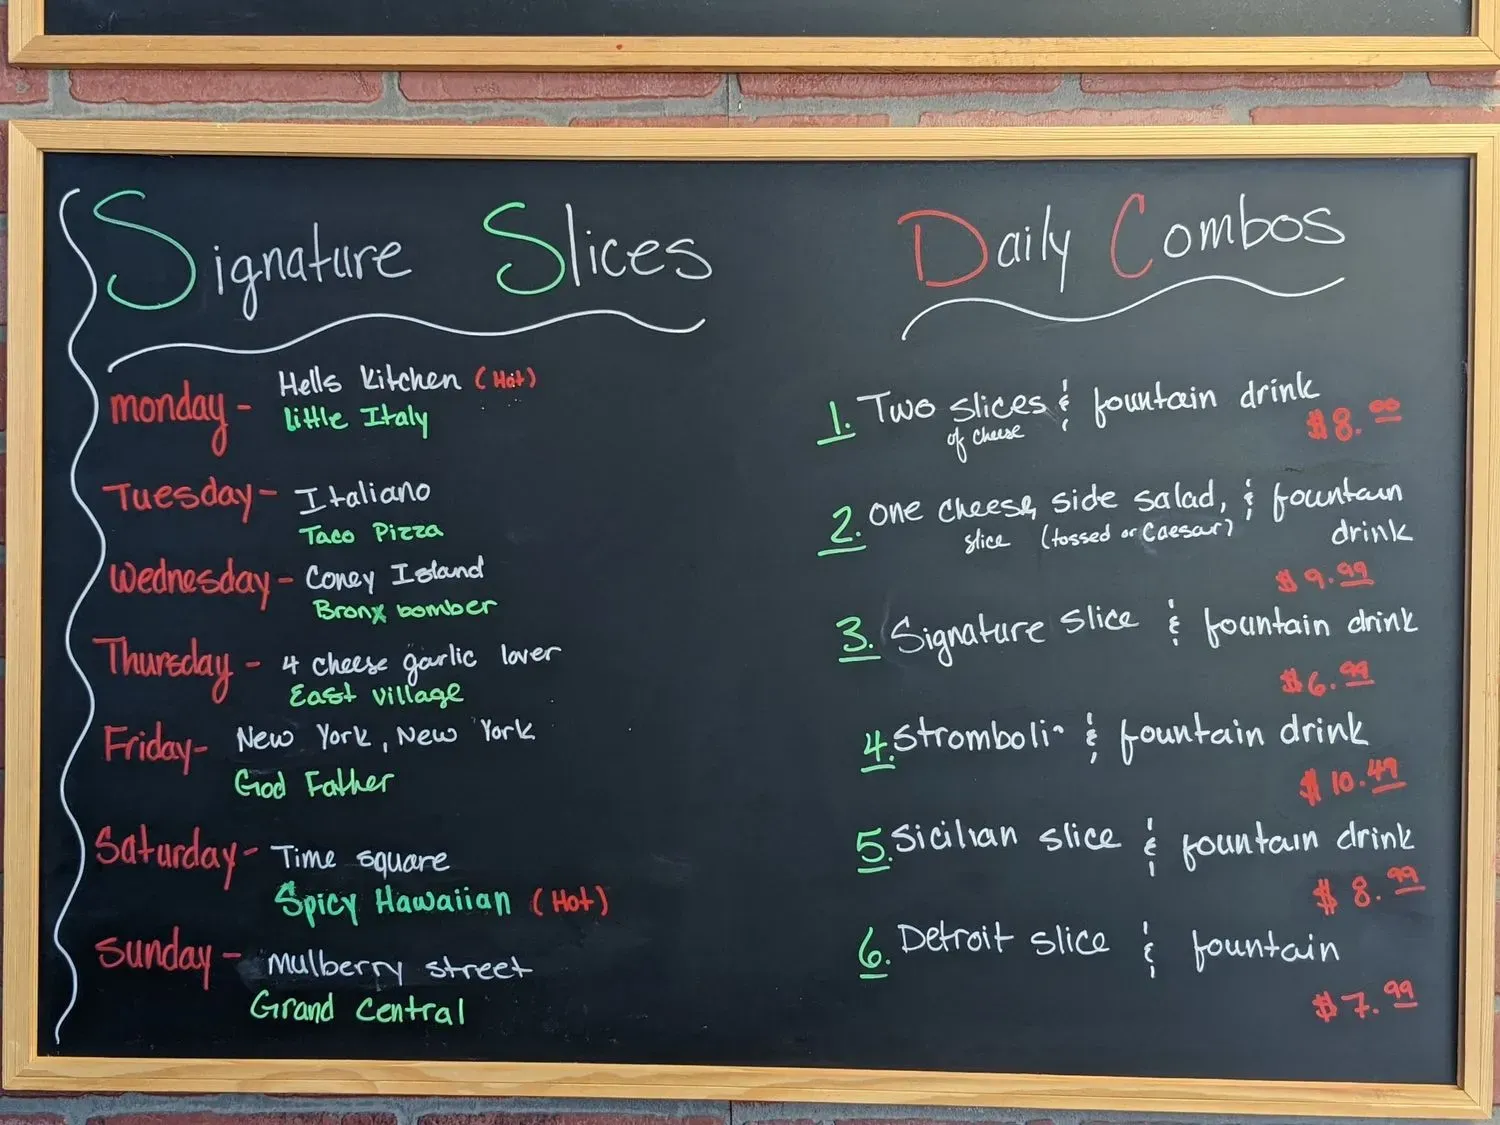 Signature Slices
monday - Hells Kitchen (Hot)
Little Italy
Tuesday - Italiano
Taco Pizza
Wednesday - Coney Island
Bronx bomber
Thursday - 4 cheese garlic lover
East Village
Friday - New York, New York
God Father
Saturday - Time square
Spicy Hawaiian (Hot)
Sunday - Mulberry street
Grand Central
Daily Combos
1. Two slices & fountain drink
of cheese
$8.00
2. One cheese, side salad, & fountain
slice (tossed or Caesar) drink
$9.99
3. Signature slice & fountain drink
$6.99
4. Stromboli & fountain drink
$10.49
5. Sicilian slice & fountain drink
$8.99
6. Detroit slice & fountain
$7.99